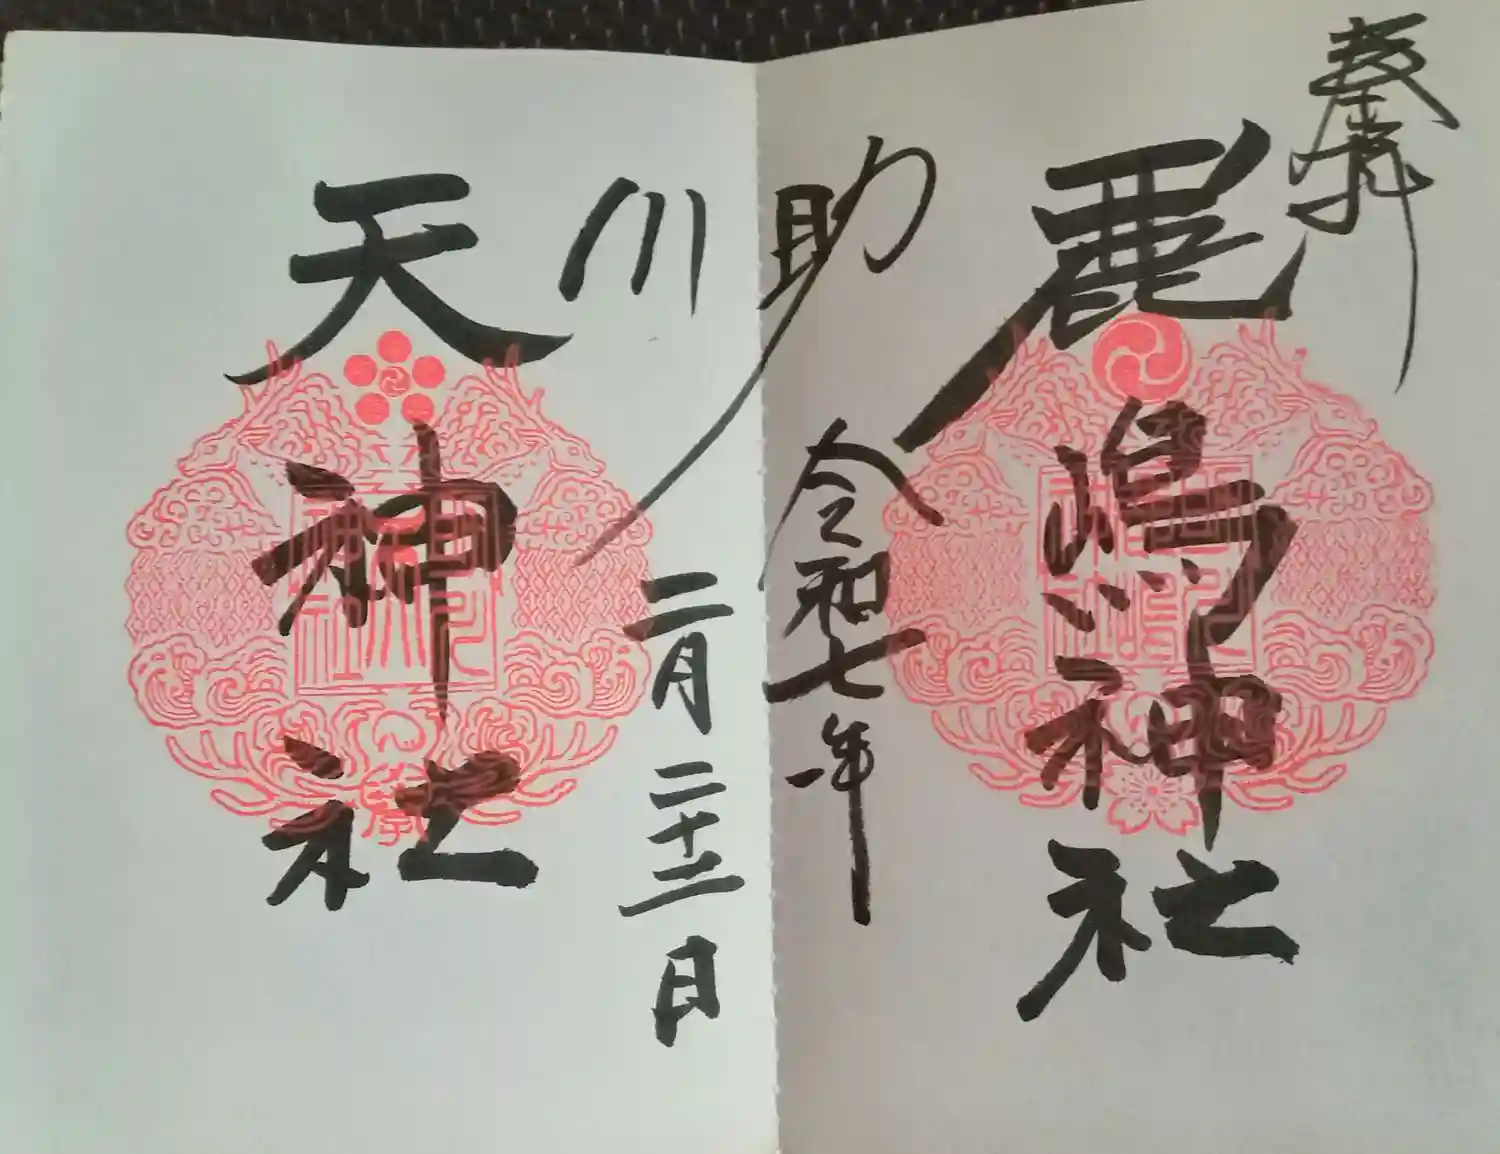 奉拝
鹿嶋神社
助川
令和七年
二月二十三日
天神社